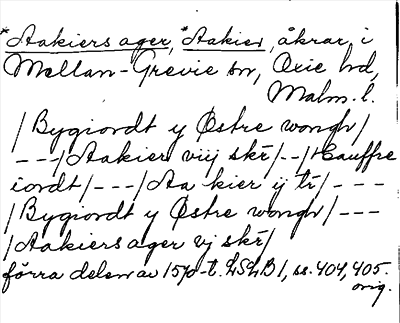 *Aakiers ager, *Aakier, åkrar, i
Mellan-Grevie sn, Oxie hd,
Malm. l.
/Bygiordt y Østre wongh/
---/Aakier viij skr̄/--/Hauffre
iordt/---/Aa kier ij tr̄/---
/Bygiordt y Østre wongh/---
/Aakiers ager vj skr̄/
förra delen av 1570-t. LSLB1, ss. 404, 405.
orig.